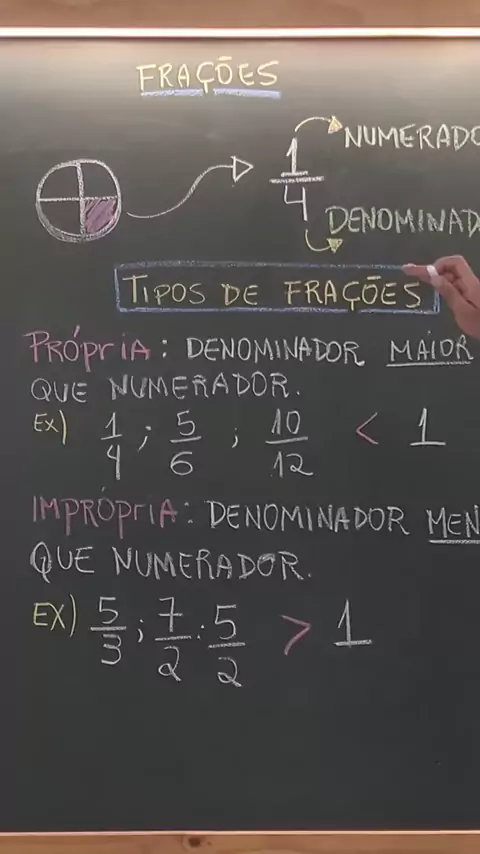 FRAÇÕES
1/4
NUMERADO
DENOMINAD
TIPOS DE FRAÇÕES
PRÓPRIA: DENOMINADOR MAIOR
QUE NUMERADOR.
EX) 1/4 ; 5/6 ; 10/12 < 1
IMPRÓPRIA: DENOMINADOR MEN
QUE NUMERADOR.
EX) 5/3 ; 7/2 : 5/2 > 1